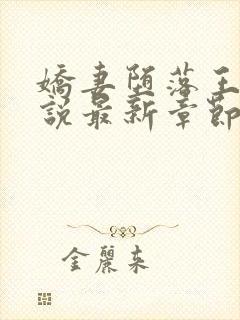 嬌妻堕落王
説最新章節
金麗來